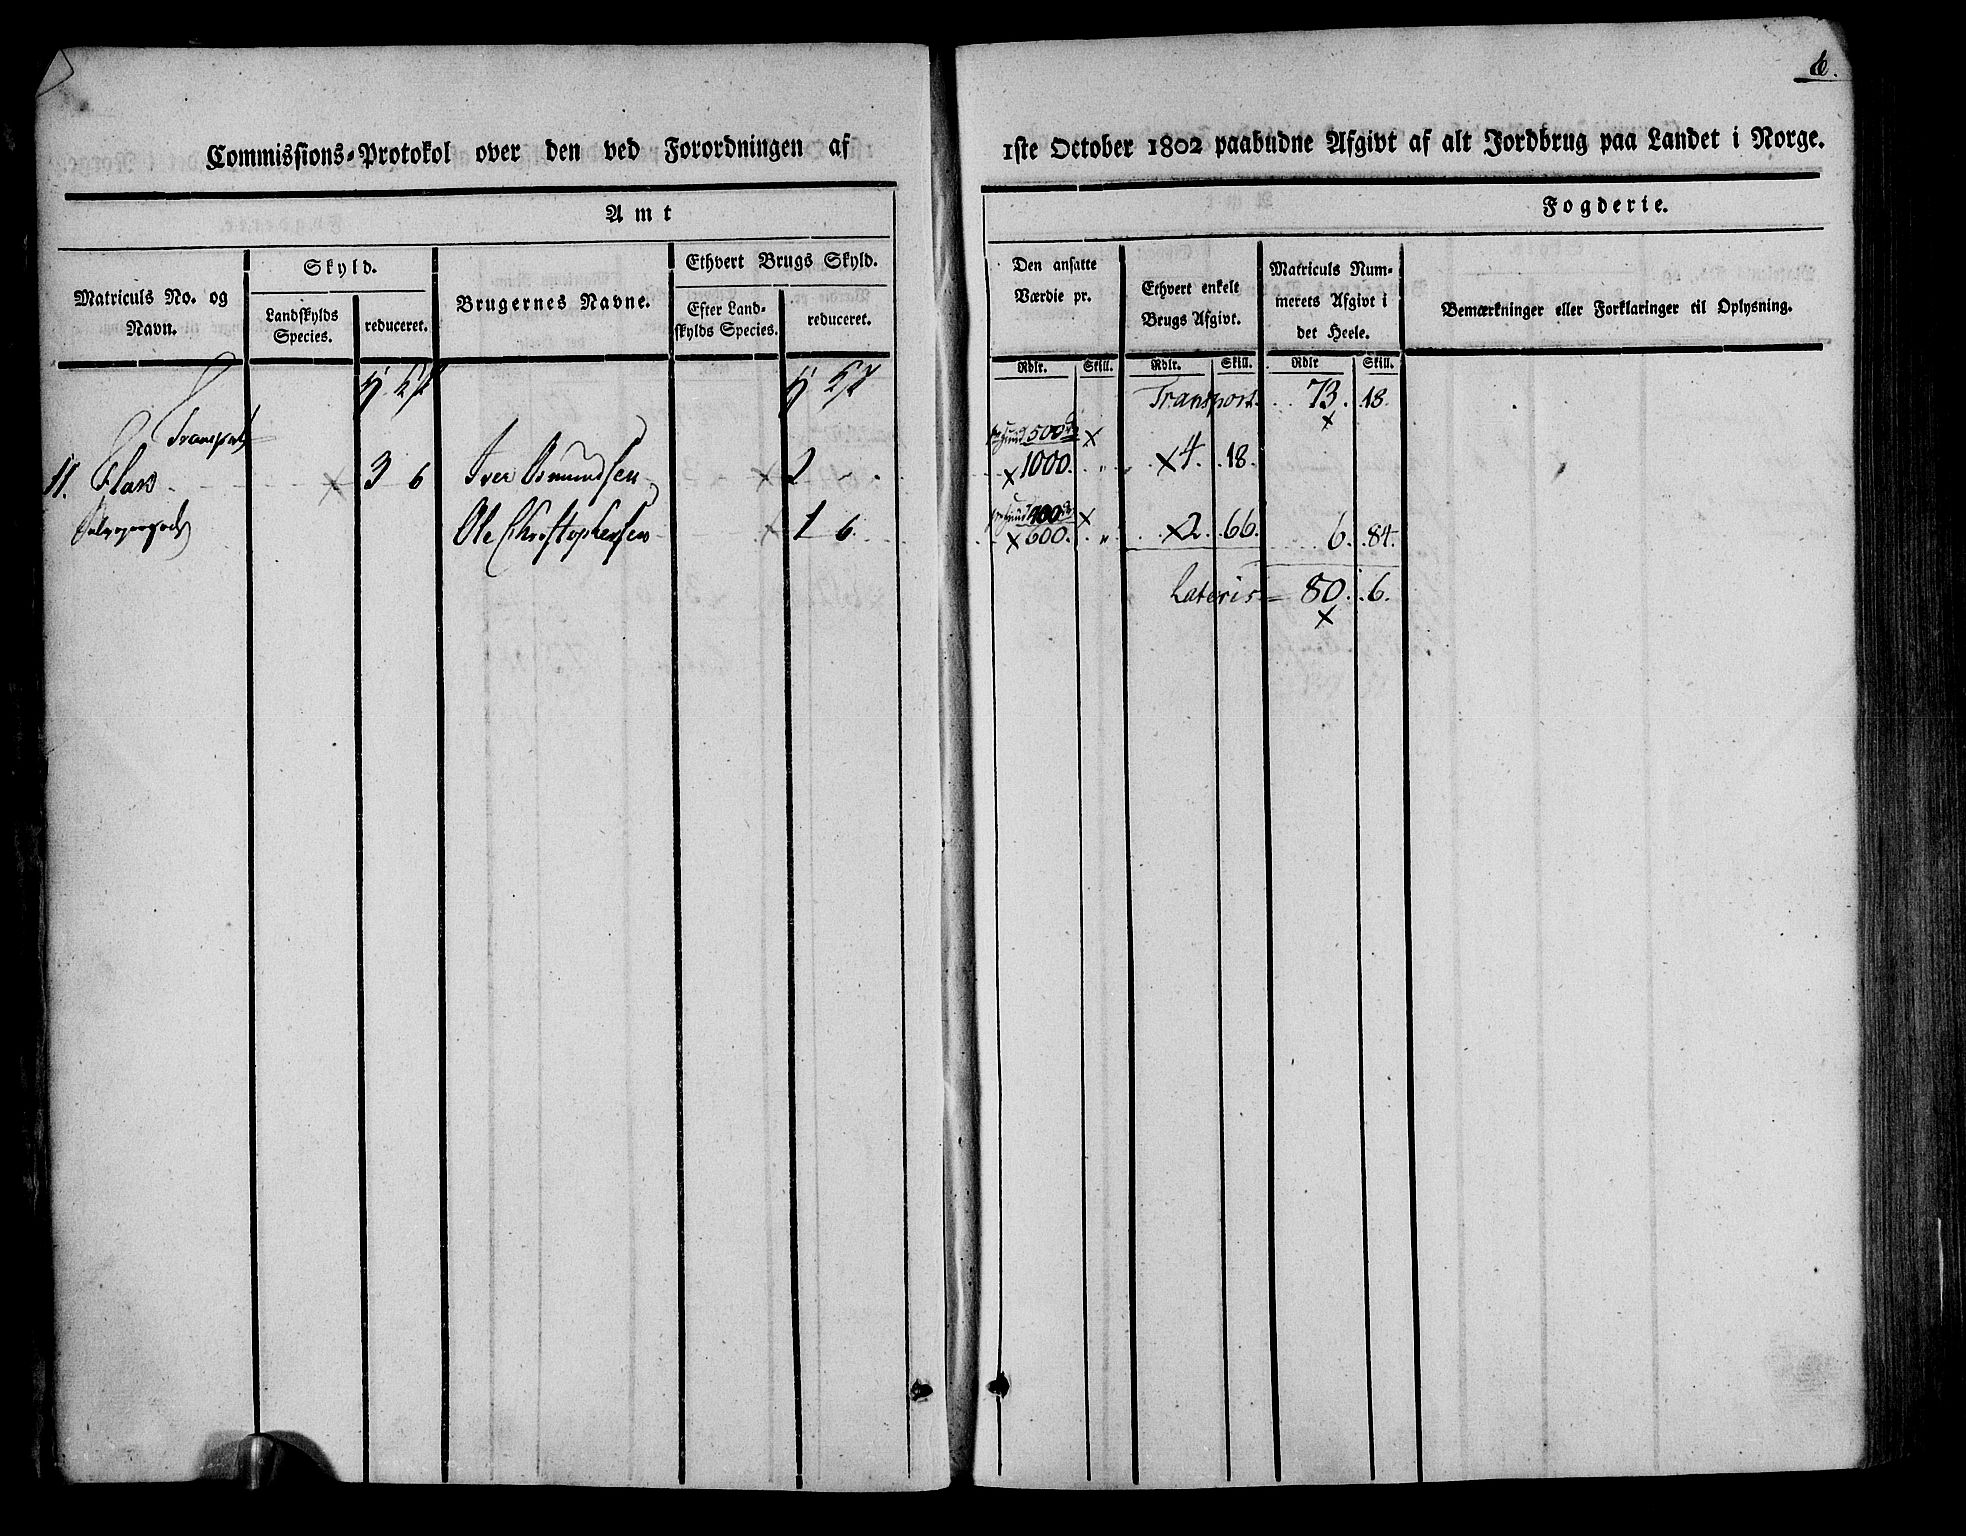 6.
Commissions-Protokol over den ved Forordningen af 1ste October 1802 paabudne Afgivt af alt Jordbrug paa Landet i Norge.
Amt
Fogderie.
Matriculs No. og Navn.
Skyld.
Landskylds Species.
reduceret.
Brugernes Navne.
Ethvert Brugs Skyld.
Efter Landskylds Species.
reduceret.
Den ansatte Værdie pr.
Ethvert enkelt Brugs Afgivt.
Matriculs Nummerets Afgivt i det Heele.
Bemærkninger eller Forklaringer til Oplysning.
Rdlr. Skill. Rdlr. Skill. Rdlr Skill.
Transport Transport. 73. 18.
500
11. 3 6 Iver Amundsen 2 - 1000. " 4. 18.
400
Ole Christophersen 1 6 600. " 2. 66. 6. 84.
Lateris = 80. 6.